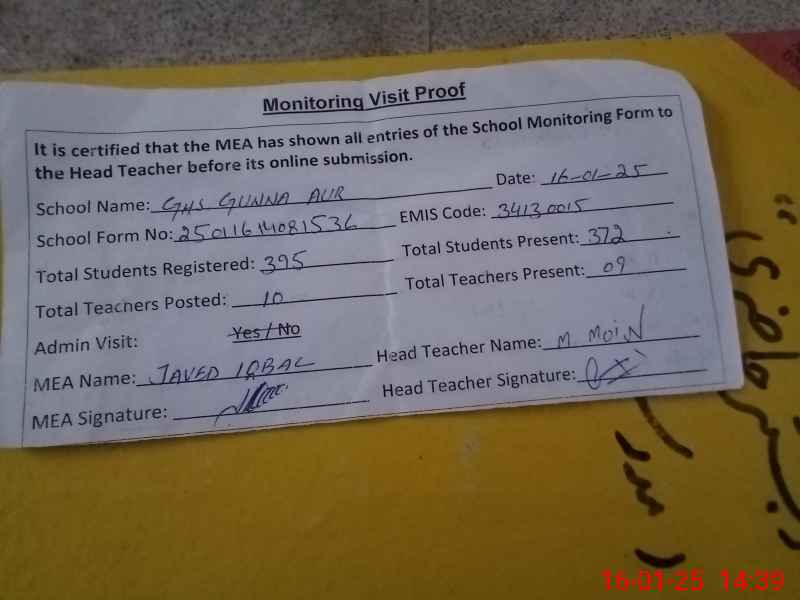 Monitoring Visit Proof
It is certified that the MEA has shown all entries of the School Monitoring Form to
the Head Teacher before its online submission.
School Name: GHS GUNNA AUR Date: 16-01-25
School Form No: 25011614081536 EMIS Code: 34130015
Total Students Registered: 395 Total Students Present: 372
Total Teachers Posted: 10 Total Teachers Present: 09
Admin Visit: Yes / No
MEA Name: JAVED IQBAL Head Teacher Name: M. MOIN
MEA Signature: Head Teacher Signature:
رجسٹر حاضری
(مدر
16-01-25 14:39